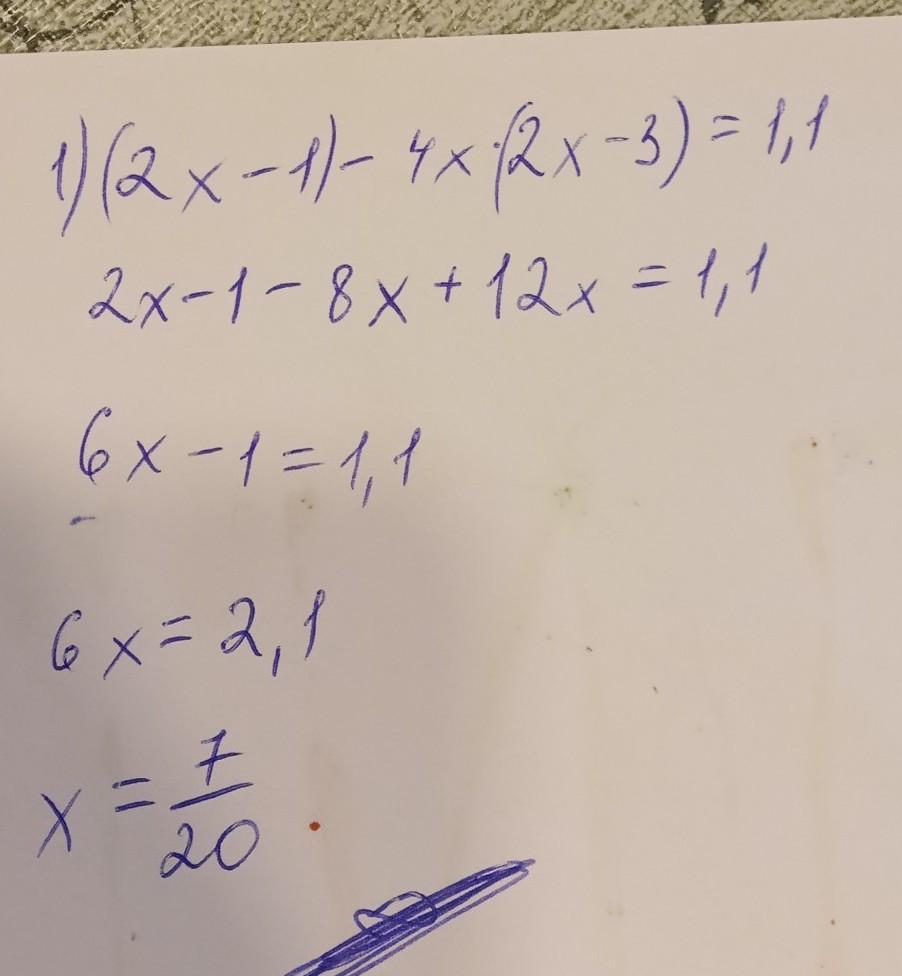 1) (2x-1)- 4x·(2x-3)=1,1
2x-1-8x+12x=1,1
6x-1=1,1
6x=2,1
x=7/20